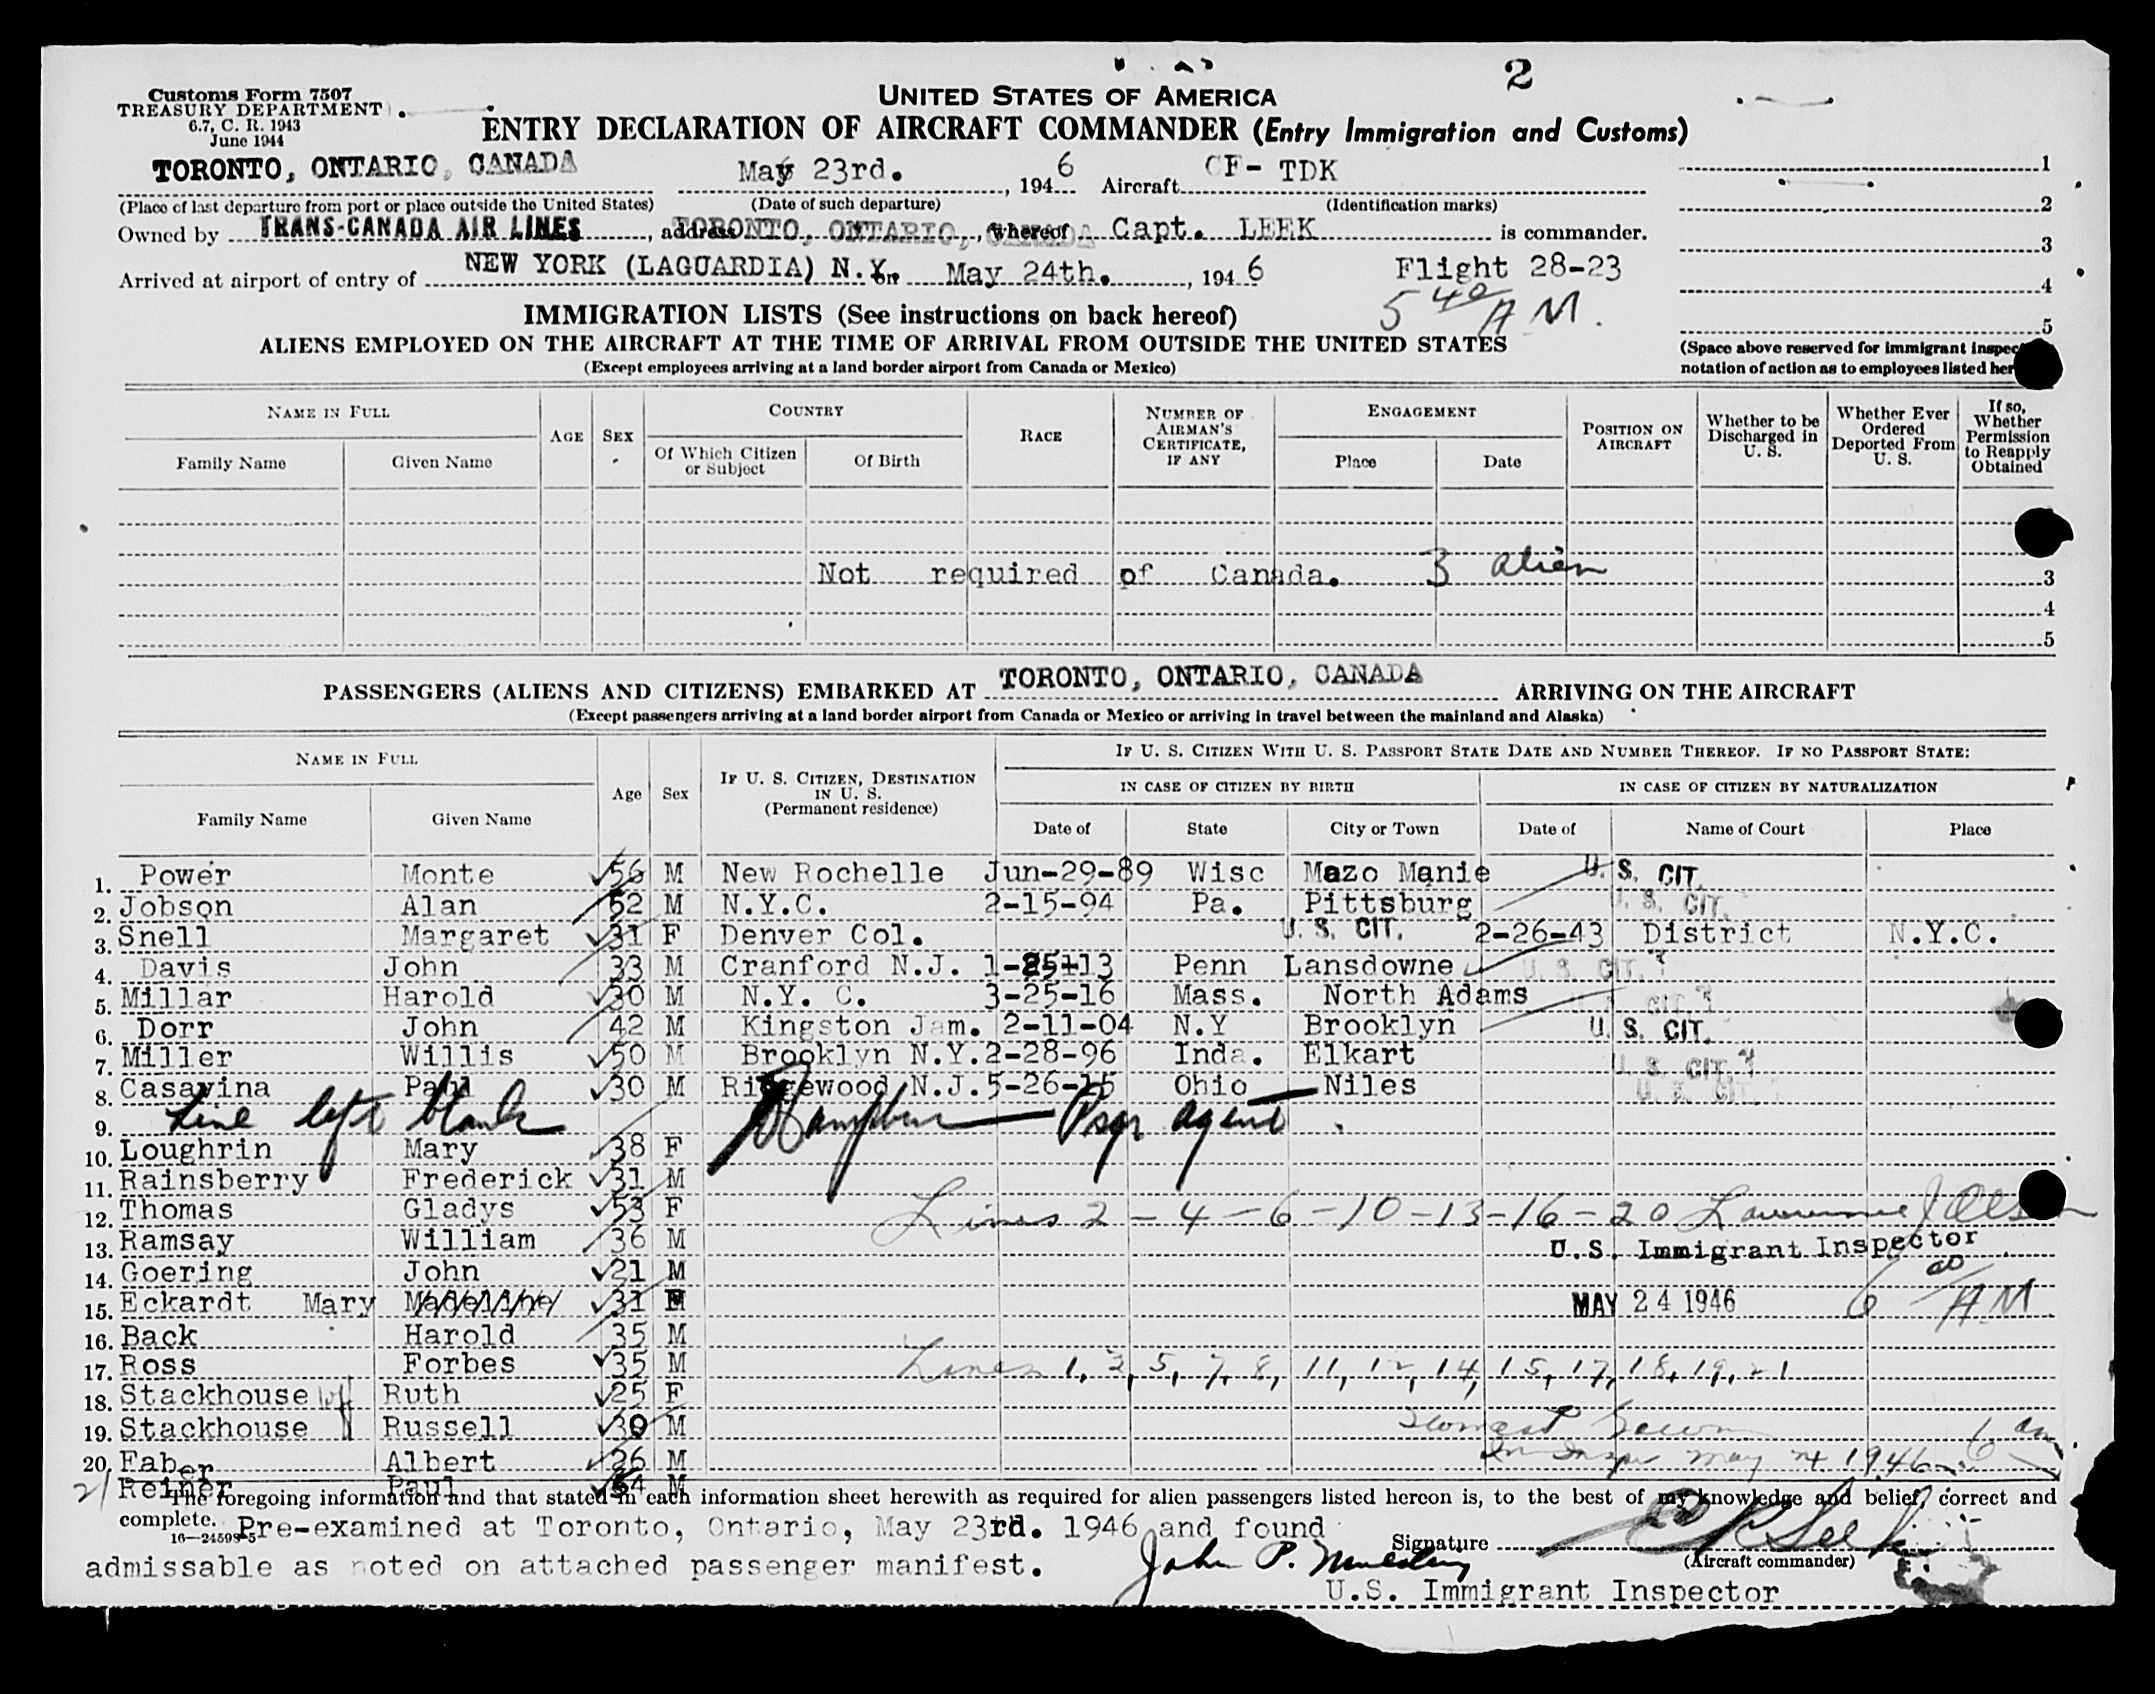 2
Customs Form 7507
TREASURY DEPARTMENT
6.7, C. R. 1943
June 1944
UNITED STATES OF AMERICA
ENTRY DECLARATION OF AIRCRAFT COMMANDER (Entry Immigration and Customs)
TORONTO, ONTARIO, CANADA May 23rd. , 1946 Aircraft CF- TDK 1
(Place of last departure from port or place outside the United States) (Date of such departure) (Identification marks) 2
Owned by TRANS-CANADA AIR LINES , address TORONTO, ONTARIO, CANADA , whereof Capt. LEEK is commander. 3
Arrived at airport of entry of NEW YORK (LAGUARDIA) N.Y. on May 24th. , 1946 Flight 28-23 4
5 40 AM.
IMMIGRATION LISTS (See instructions on back hereof) 5
ALIENS EMPLOYED ON THE AIRCRAFT AT THE TIME OF ARRIVAL FROM OUTSIDE THE UNITED STATES
(Except employees arriving at a land border airport from Canada or Mexico)
(Space above reserved for immigrant inspec
notation of action as to employees listed her
NAME IN FULL AGE SEX COUNTRY RACE NUMBER OF AIRMAN'S CERTIFICATE, IF ANY ENGAGEMENT POSITION ON AIRCRAFT Whether to be Discharged in U. S. Whether Ever Ordered Deported From U. S. If so, Whether Permission to Reapply Obtained
Family Name Given Name Of Which Citizen or Subject Of Birth Place Date
Not required of Canada. 3 alien 3
4
5
PASSENGERS (ALIENS AND CITIZENS) EMBARKED AT TORONTO, ONTARIO, CANADA ARRIVING ON THE AIRCRAFT
(Except passengers arriving at a land border airport from Canada or Mexico or arriving in travel between the mainland and Alaska)
NAME IN FULL Age Sex IF U. S. CITIZEN, DESTINATION IN U. S. (Permanent residence) IF U. S. CITIZEN WITH U. S. PASSPORT STATE DATE AND NUMBER THEREOF. IF NO PASSPORT STATE:
IN CASE OF CITIZEN BY BIRTH IN CASE OF CITIZEN BY NATURALIZATION
Family Name Given Name Date of State City or Town Date of Name of Court Place
1. Power Monte 56 M New Rochelle Jun-29-89 Wisc Mazo Manie U. S. CIT.
2. Jobson Alan 52 M N.Y.C. 2-15-94 Pa. Pittsburg U. S. CIT.
3. Snell Margaret 31 F Denver Col. U. S. CIT. 2-26-43 District N.Y.C.
4. Davis John 33 M Cranford N.J. 1-25-13 Penn Lansdowne U. S. CIT.
5. Millar Harold 30 M N.Y. C. 3-25-16 Mass. North Adams U. S. CIT.
6. Dorr John 42 M Kingston Jam. 2-11-04 N.Y Brooklyn U. S. CIT.
7. Miller Willis 50 M Brooklyn N.Y. 2-28-96 Inda. Elkart U. S. CIT.
8. Casavina Paul 30 M Ridgewood N.J. 5-26-15 Ohio Niles U. S. CIT.
9. Line left blank Psgr agent
10. Loughrin Mary 38 F
11. Rainsberry Frederick 31 M
12. Thomas Gladys 53 F Lines 2 - 4 - 6 - 10 - 13 - 16 - 20 Lawrence J Olson
13. Ramsay William 36 M U.S. Immigrant Inspector
14. Goering John 21 M
15. Eckardt Mary Madeline 31 F MAY 24 1946 6 00 AM
16. Back Harold 35 M
17. Ross Forbes 35 M Lines 1, 3, 5, 7, 8, 11, 12, 14, 15, 17, 18, 19, 21
18. Stackhouse Ruth 25 F
19. Stackhouse Russell 30 M 6 am
20. Faber Albert 26 M Im Inspr May 24 1946
21 Reiner Paul 54 M
The foregoing information and that stated in each information sheet herewith as required for alien passengers listed hereon is, to the best of my knowledge and belief, correct and
complete.
16—24598-5
Pre-examined at Toronto, Ontario, May 23rd. 1946 and found
Signature
(Aircraft commander)
admissable as noted on attached passenger manifest. John P.
U.S. Immigrant Inspector